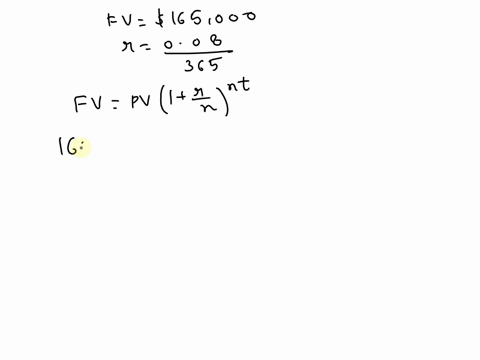 FV = $165,000
r = 0.08
365
FV = PV (1 + r/n)^nt
16